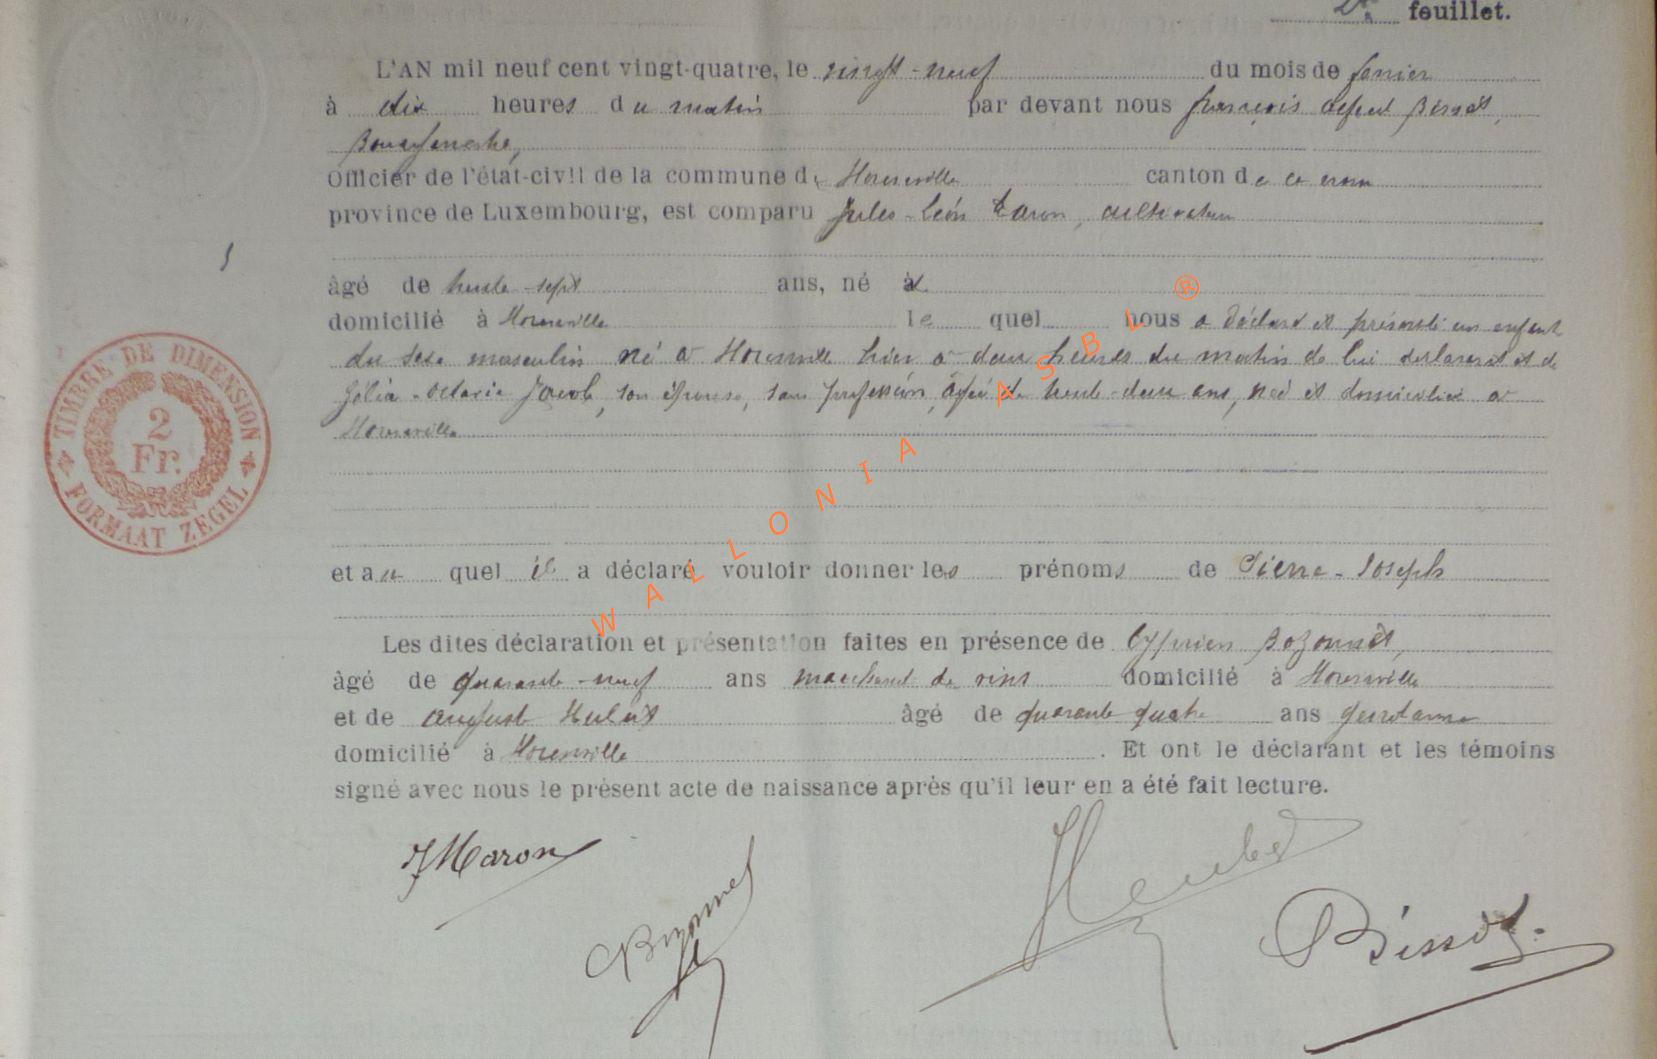 2e feuillet.
L'AN mil neuf cent vingt-quatre, le vingt-neuf du mois de fevrier
à dix heures du matin par devant nous françois Bissot,
Bourgmestre,
Officier de l'état-civil de la commune de Houmville canton de
province de Luxembourg, est comparu Jules-Léon Maron, cultivateur
âgé de trente-sept ans, né à
domicilié à Houmville le quel nous a déclaré et présenté un enfant
du sexe masculin né à Houmville hier à deux heures du matin de lui déclarant et de
Octavie Jacob, son épouse, sans profession, âgée de trente-deux ans, née et domiciliée à
Houmville
et au quel il a déclaré vouloir donner les prénoms de Pierre-Joseph
Les dites déclaration et présentation faites en présence de Cyprien Bozonnet,
âgé de quarante-neuf ans marchand de vins domicilié à Houmville
et de August Hubert âgé de quarante quatre ans gendarme
domicilié à Houmville. Et ont le déclarant et les témoins
signé avec nous le présent acte de naissance après qu'il leur en a été fait lecture.
JMaron
Bissot.
TIMBRE DE DIMENSION
2
Fr.
FORMAAT ZEGEL
WALLONIA ASBL ®